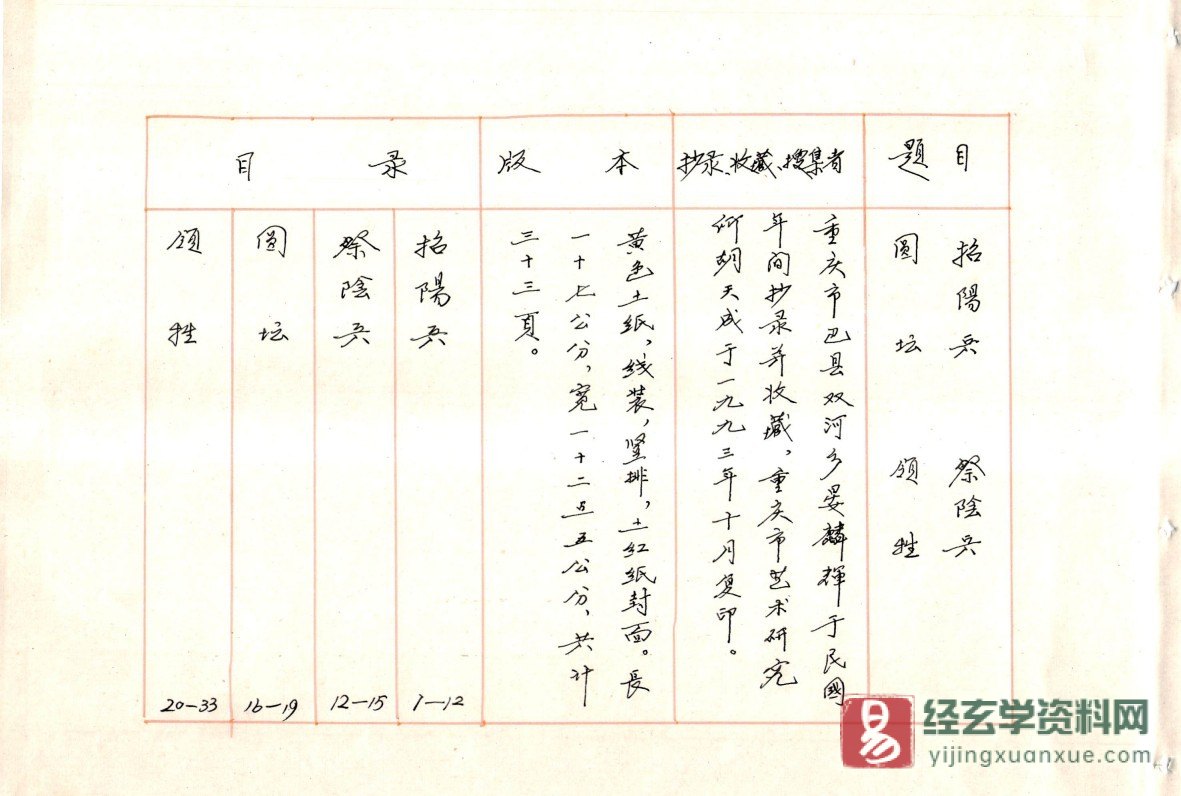 题目
招陽兵 祭陰兵
圆坛 领牲
抄录、收藏、搜集者
重庆市巴县双河乡晏麟辉于民國
年间抄录并收藏，重庆市艺术研究
所胡天成于一九九三年十月复印。
版本
黄色土纸，线装，竖排，土红纸封面。長
一十七公分，宽一十二点五公分，共计
三十三頁。
目录
招陽兵 1—12
祭陰兵 12—15
圆坛 16—19
领牲 20—33
易
经玄学资料网
yijingxuanxue.com